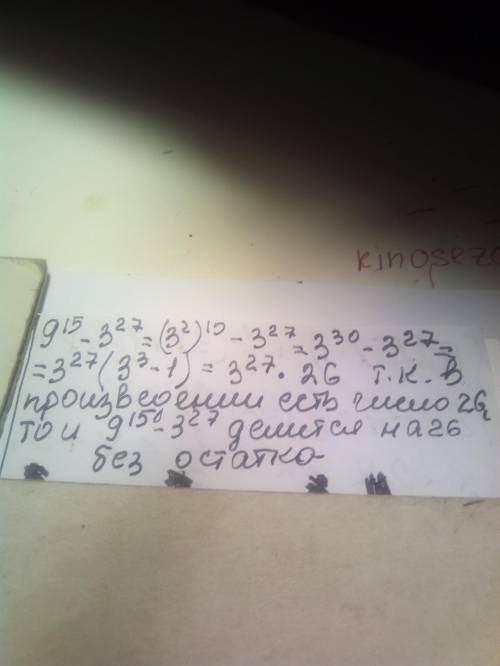 kinoseze
9¹⁵ - 3²⁷ = (3²)¹⁵ - 3²⁷ = 3³⁰ - 3²⁷ =
= 3²⁷(3³-1) = 3²⁷ · 26 т.к. в
произведении есть число 26,
то и 9¹⁵ - 3²⁷ делится на 26
без остатка